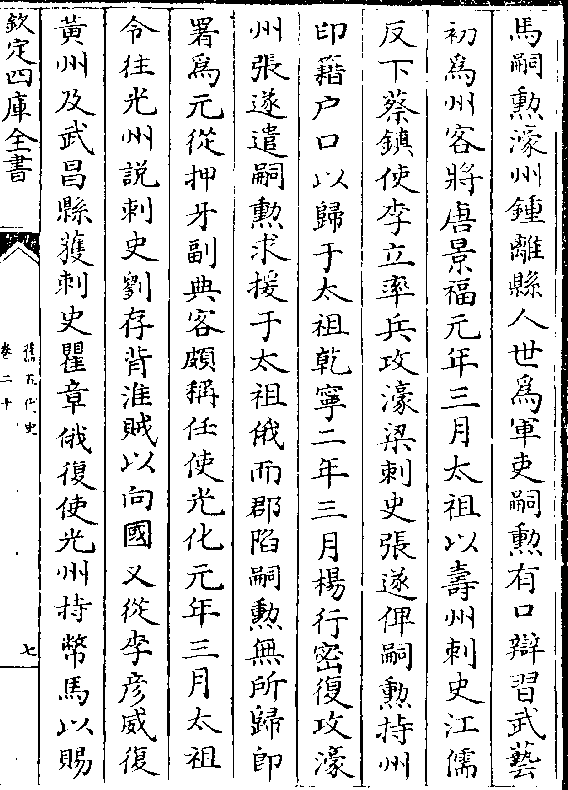 馬嗣勲濠州鍾離縣人世為軍吏嗣勲有口辯習武藝
初為州客將唐景福元年三月太祖以夀州刺史江儒
反下蔡鎮使李立率兵攻濠梁刺史張遂俾嗣勲持州
印籍户口以歸于太祖乾寧二年三月楊行密復攻濠
州張遂遣嗣勲求援于太祖俄而郡陷嗣勲無所歸即
署為元從押牙副典客頗稱任使光化元年三月太祖
令往光州說刺史劉存背淮賊以向國又從李彦威復
黄州及武昌縣獲刺史瞿章俄復使光州持幣馬以賜
欽定四庫全書
舊五代史
卷二十
七